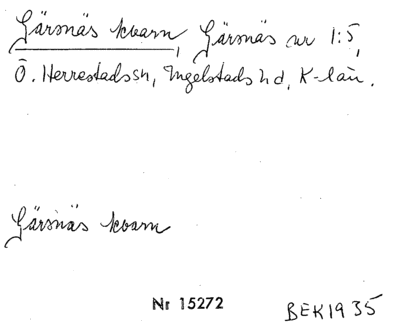 Gärsnäs kvarn, Gärsnäs nr 1:5,
Ö. Herrestads sn, Ingelstads hd, K-län.
Gärsnäs kvarn
Nr 15272
BEK1935